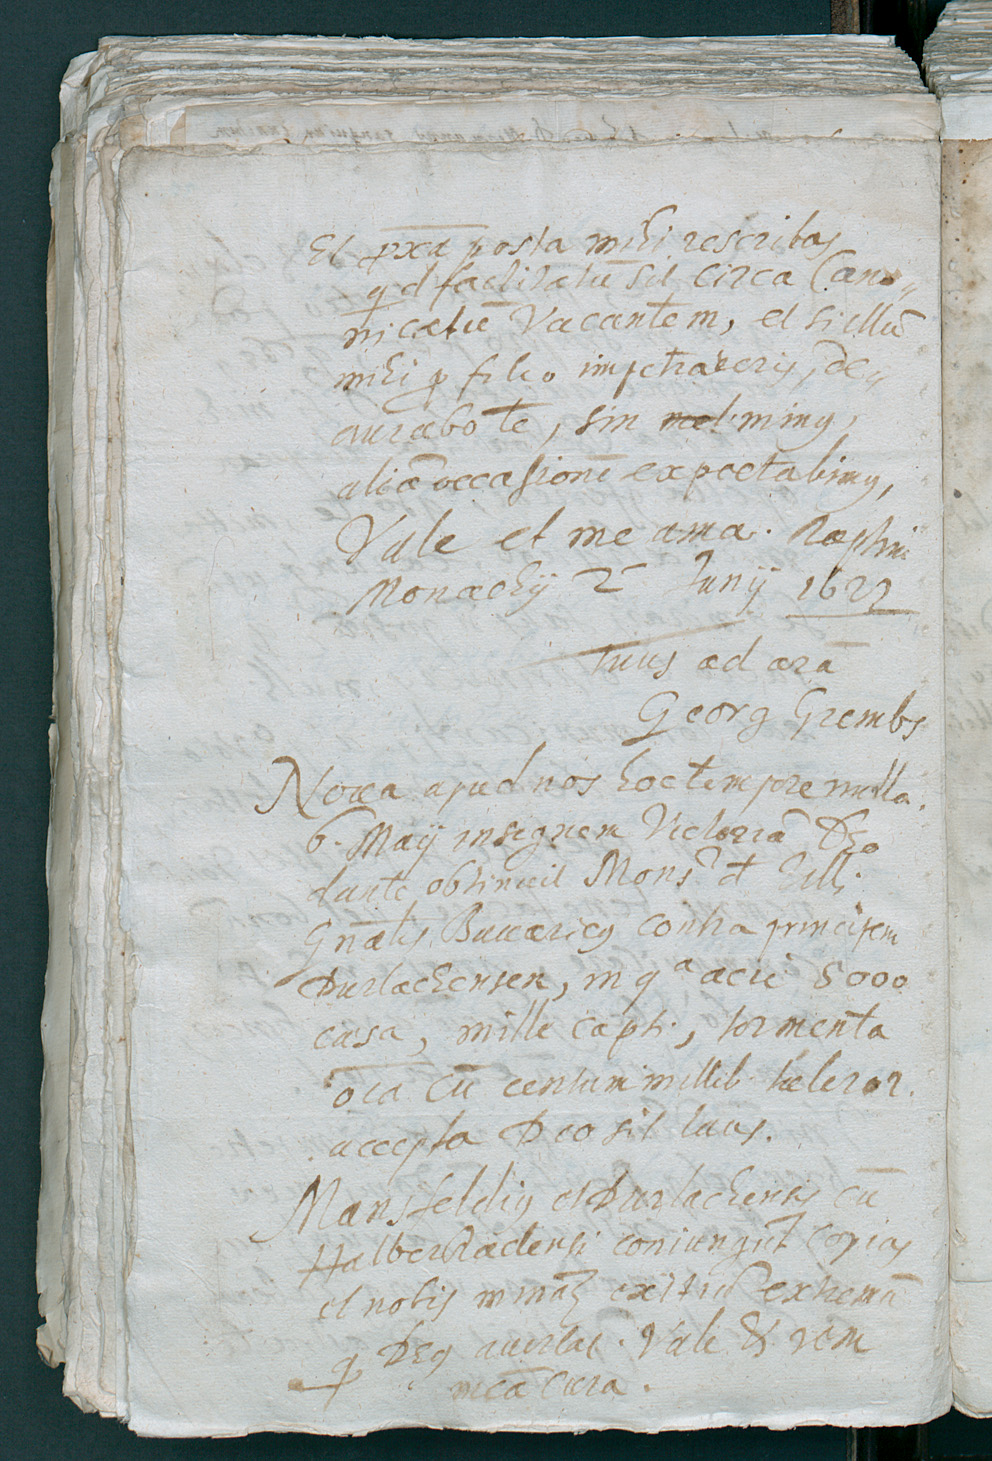 Et pxā posta mihi rescribas
qd factitatū sit circa Cano„
nicatū Vacantem, et si illū
mihi p filio impetraveris, de„
aurabo te, sin minus,
aliā occasionē expectabimus,
Vale et me ama. Raptim
Monachij 2 Junij 1622
tuus ad arā
Georg Grembs
Nova apud nos hoc tempore nulla.
6. Maij insignem Victoriā Deo
dante obtinuit Mons. d Tilli
Gnālis Bavaricus contra principem
Durlachensem, in qa acie 5000
cæsa, mille capti, tormenta
oīa cū centum millib. taleror.
accepta Deo sit laus.
Mansfeldius et Durlachensis cū
Halberstadensi coniungūt copias
et nobis extremū
q Deus avertat. Vale & rem
meā cura.